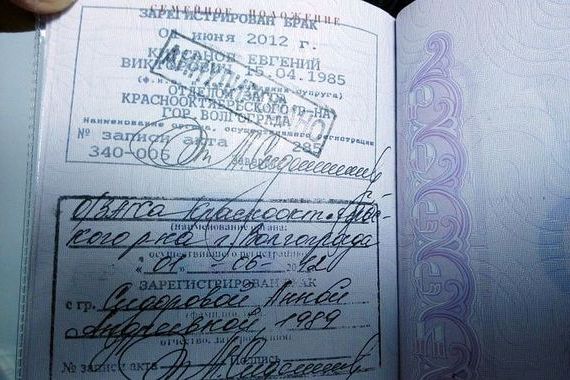 СЕМЕЙНОЕ ПОЛОЖЕНИЕ
ЗАРЕГИСТРИРОВАН БРАК
01 июня 2012 г.
ЕВГЕНИЙ
15.04.1985
ОТДЕЛОМ ЗАГС
КРАСНООКТЯБРЬСКОГО Р-НА
ГОР. ВОЛГОГРАДА
Наименование органа, осуществившего регистрацию
№ записи акта 285
340-006 Заверено
О/ЗАГСа Краснооктябрь-
кого р-на г. Волгограда
(наименование органа:
осуществившего регистрацию)
"01" - 06 - 2012
ЗАРЕГИСТРИРОВАН БРАК
с гр. Сидоровой Анной
Андреевной, 1989
отчество, дата рождения
№ записи акта Подпись